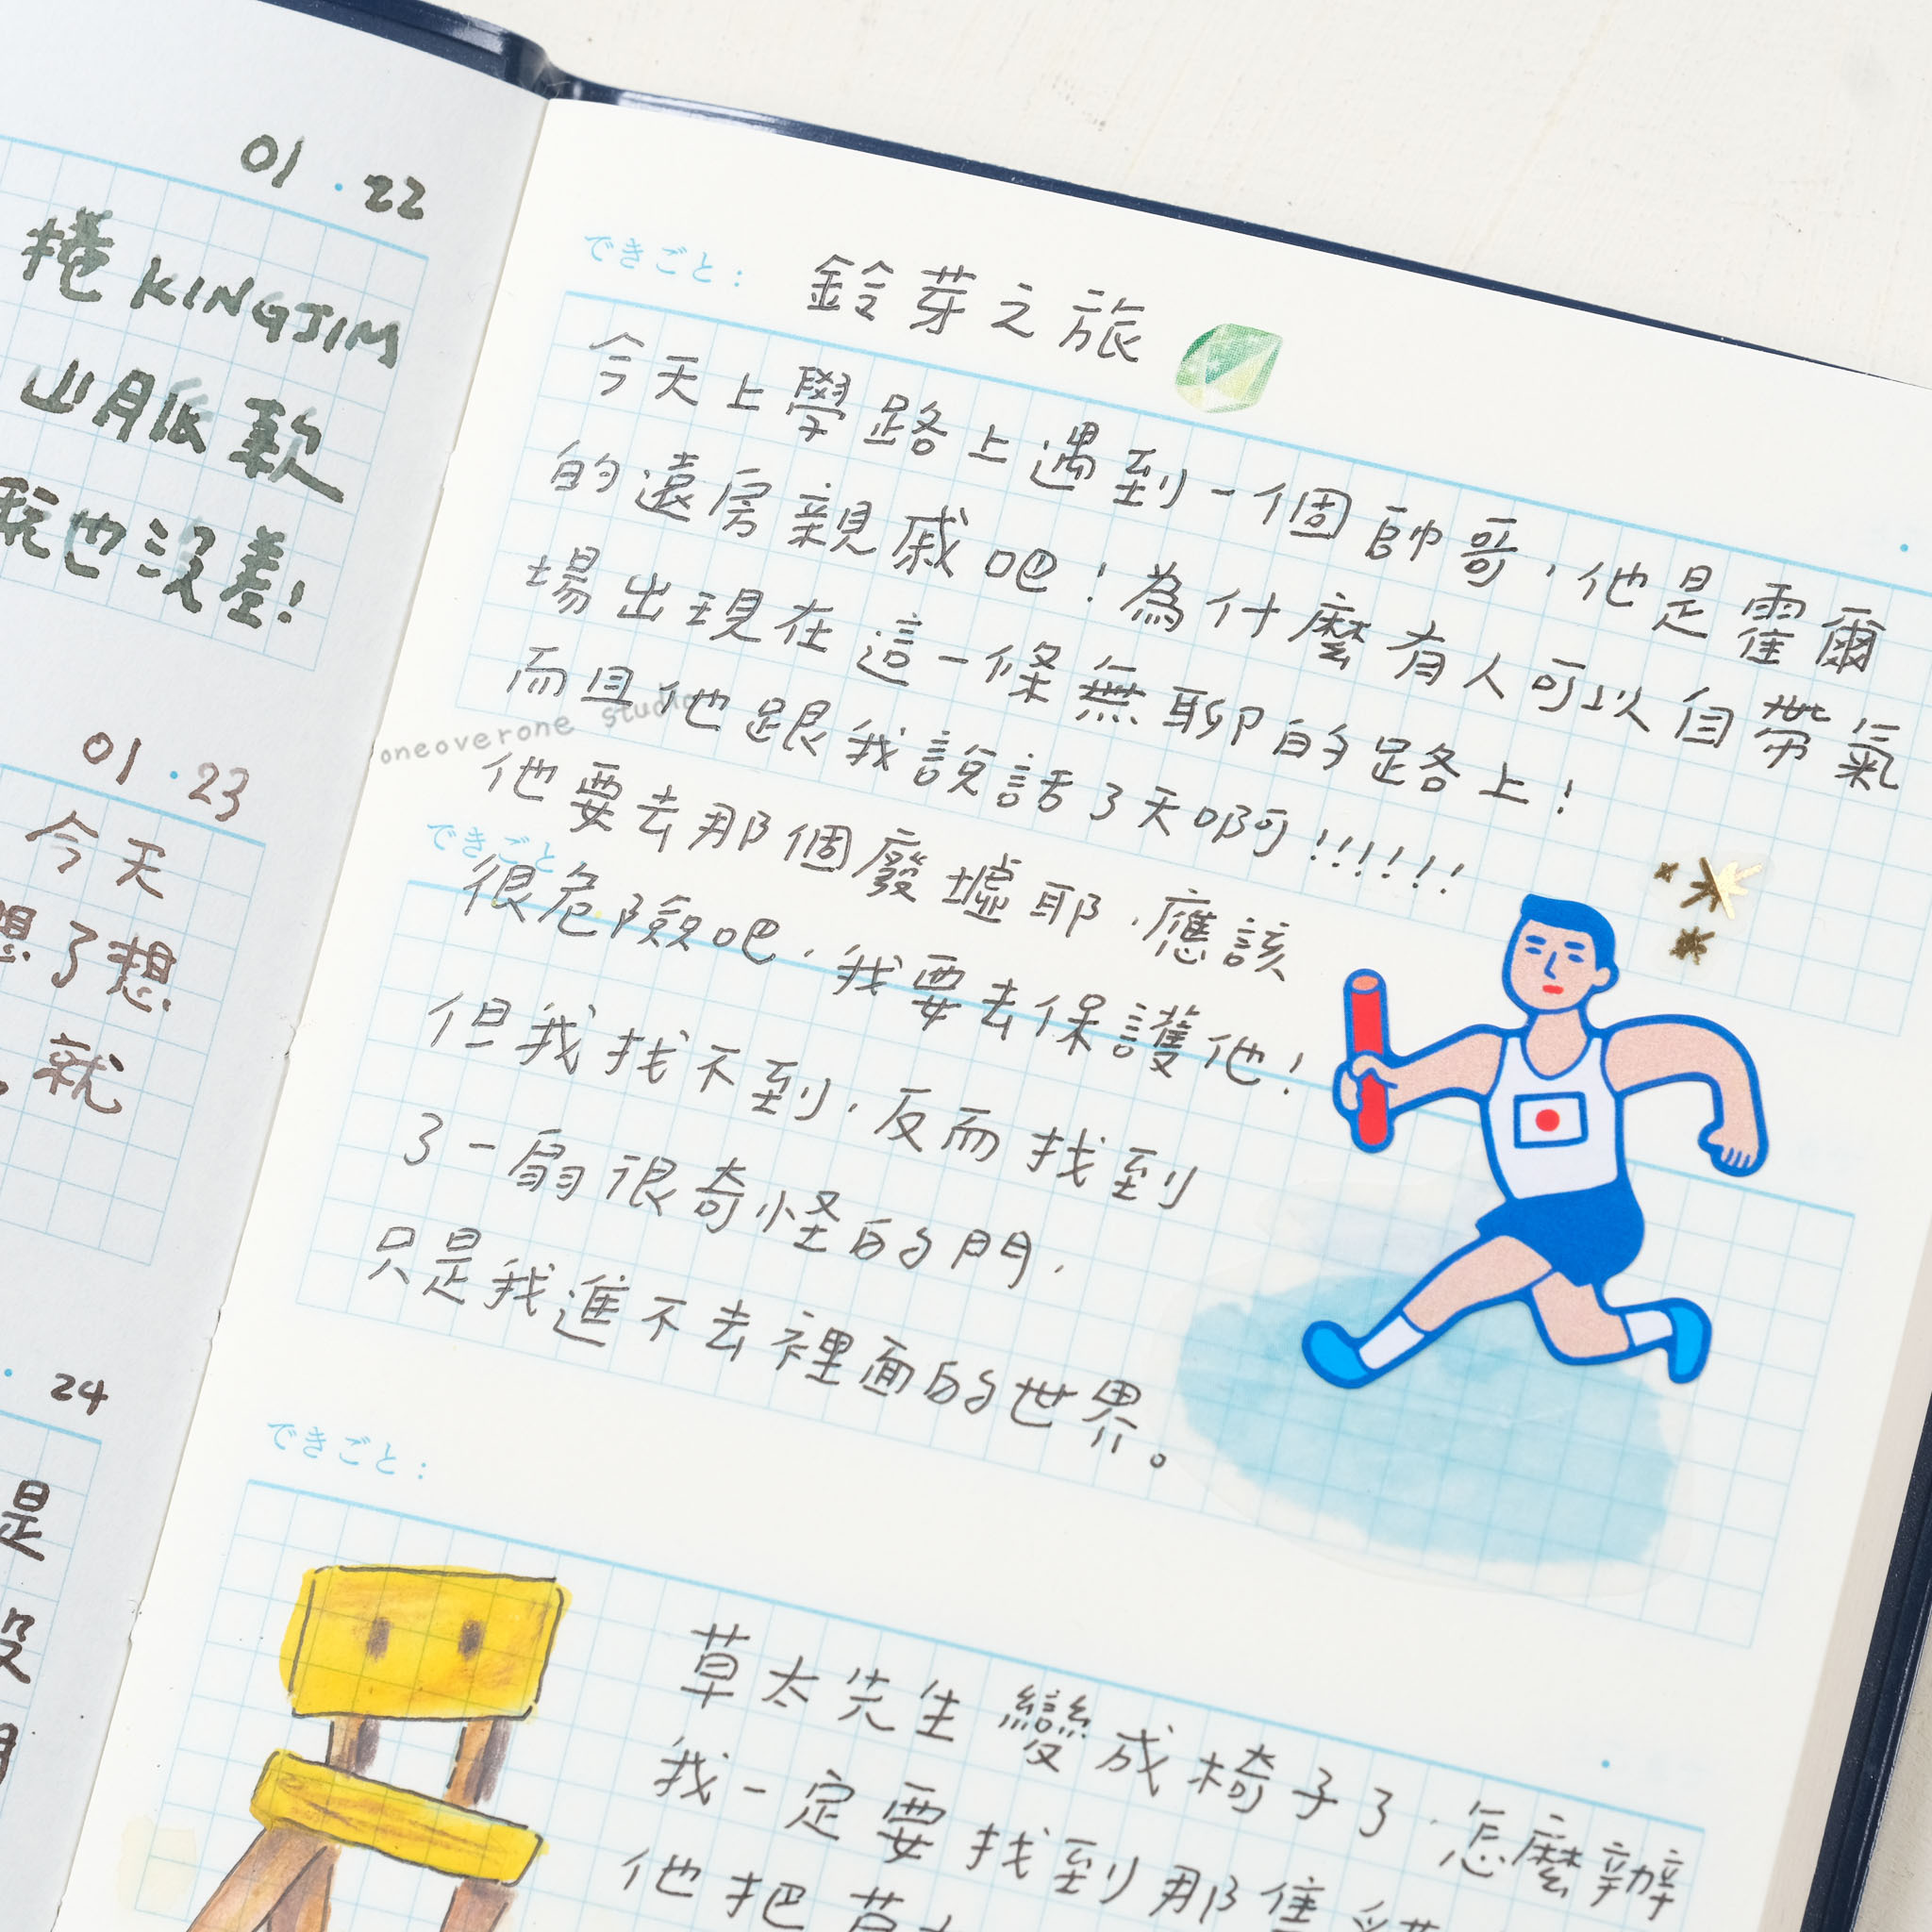 01・22
捲 KINGJIM
山脈款
我也沒差!
01・23
今天
想了想
就
24
是
できごと:
鈴芽之旅
今天上學路上遇到一個帥哥,他是霍爾
的遠房親戚吧!為什麼有人可以自帶氣
場出現在這一條無聊的路上!
而且他跟我說話了天啊!!!!!!
oneoverone studio
他要去那個廢墟耶,應該
できごと
很危險吧,我要去保護他!
但我找不到,反而找到
了一扇很奇怪的門,
只是我進不去裡面的世界。
できごと:
草太先生變成椅子了,怎麼辦
我一定要找到那隻
他把草